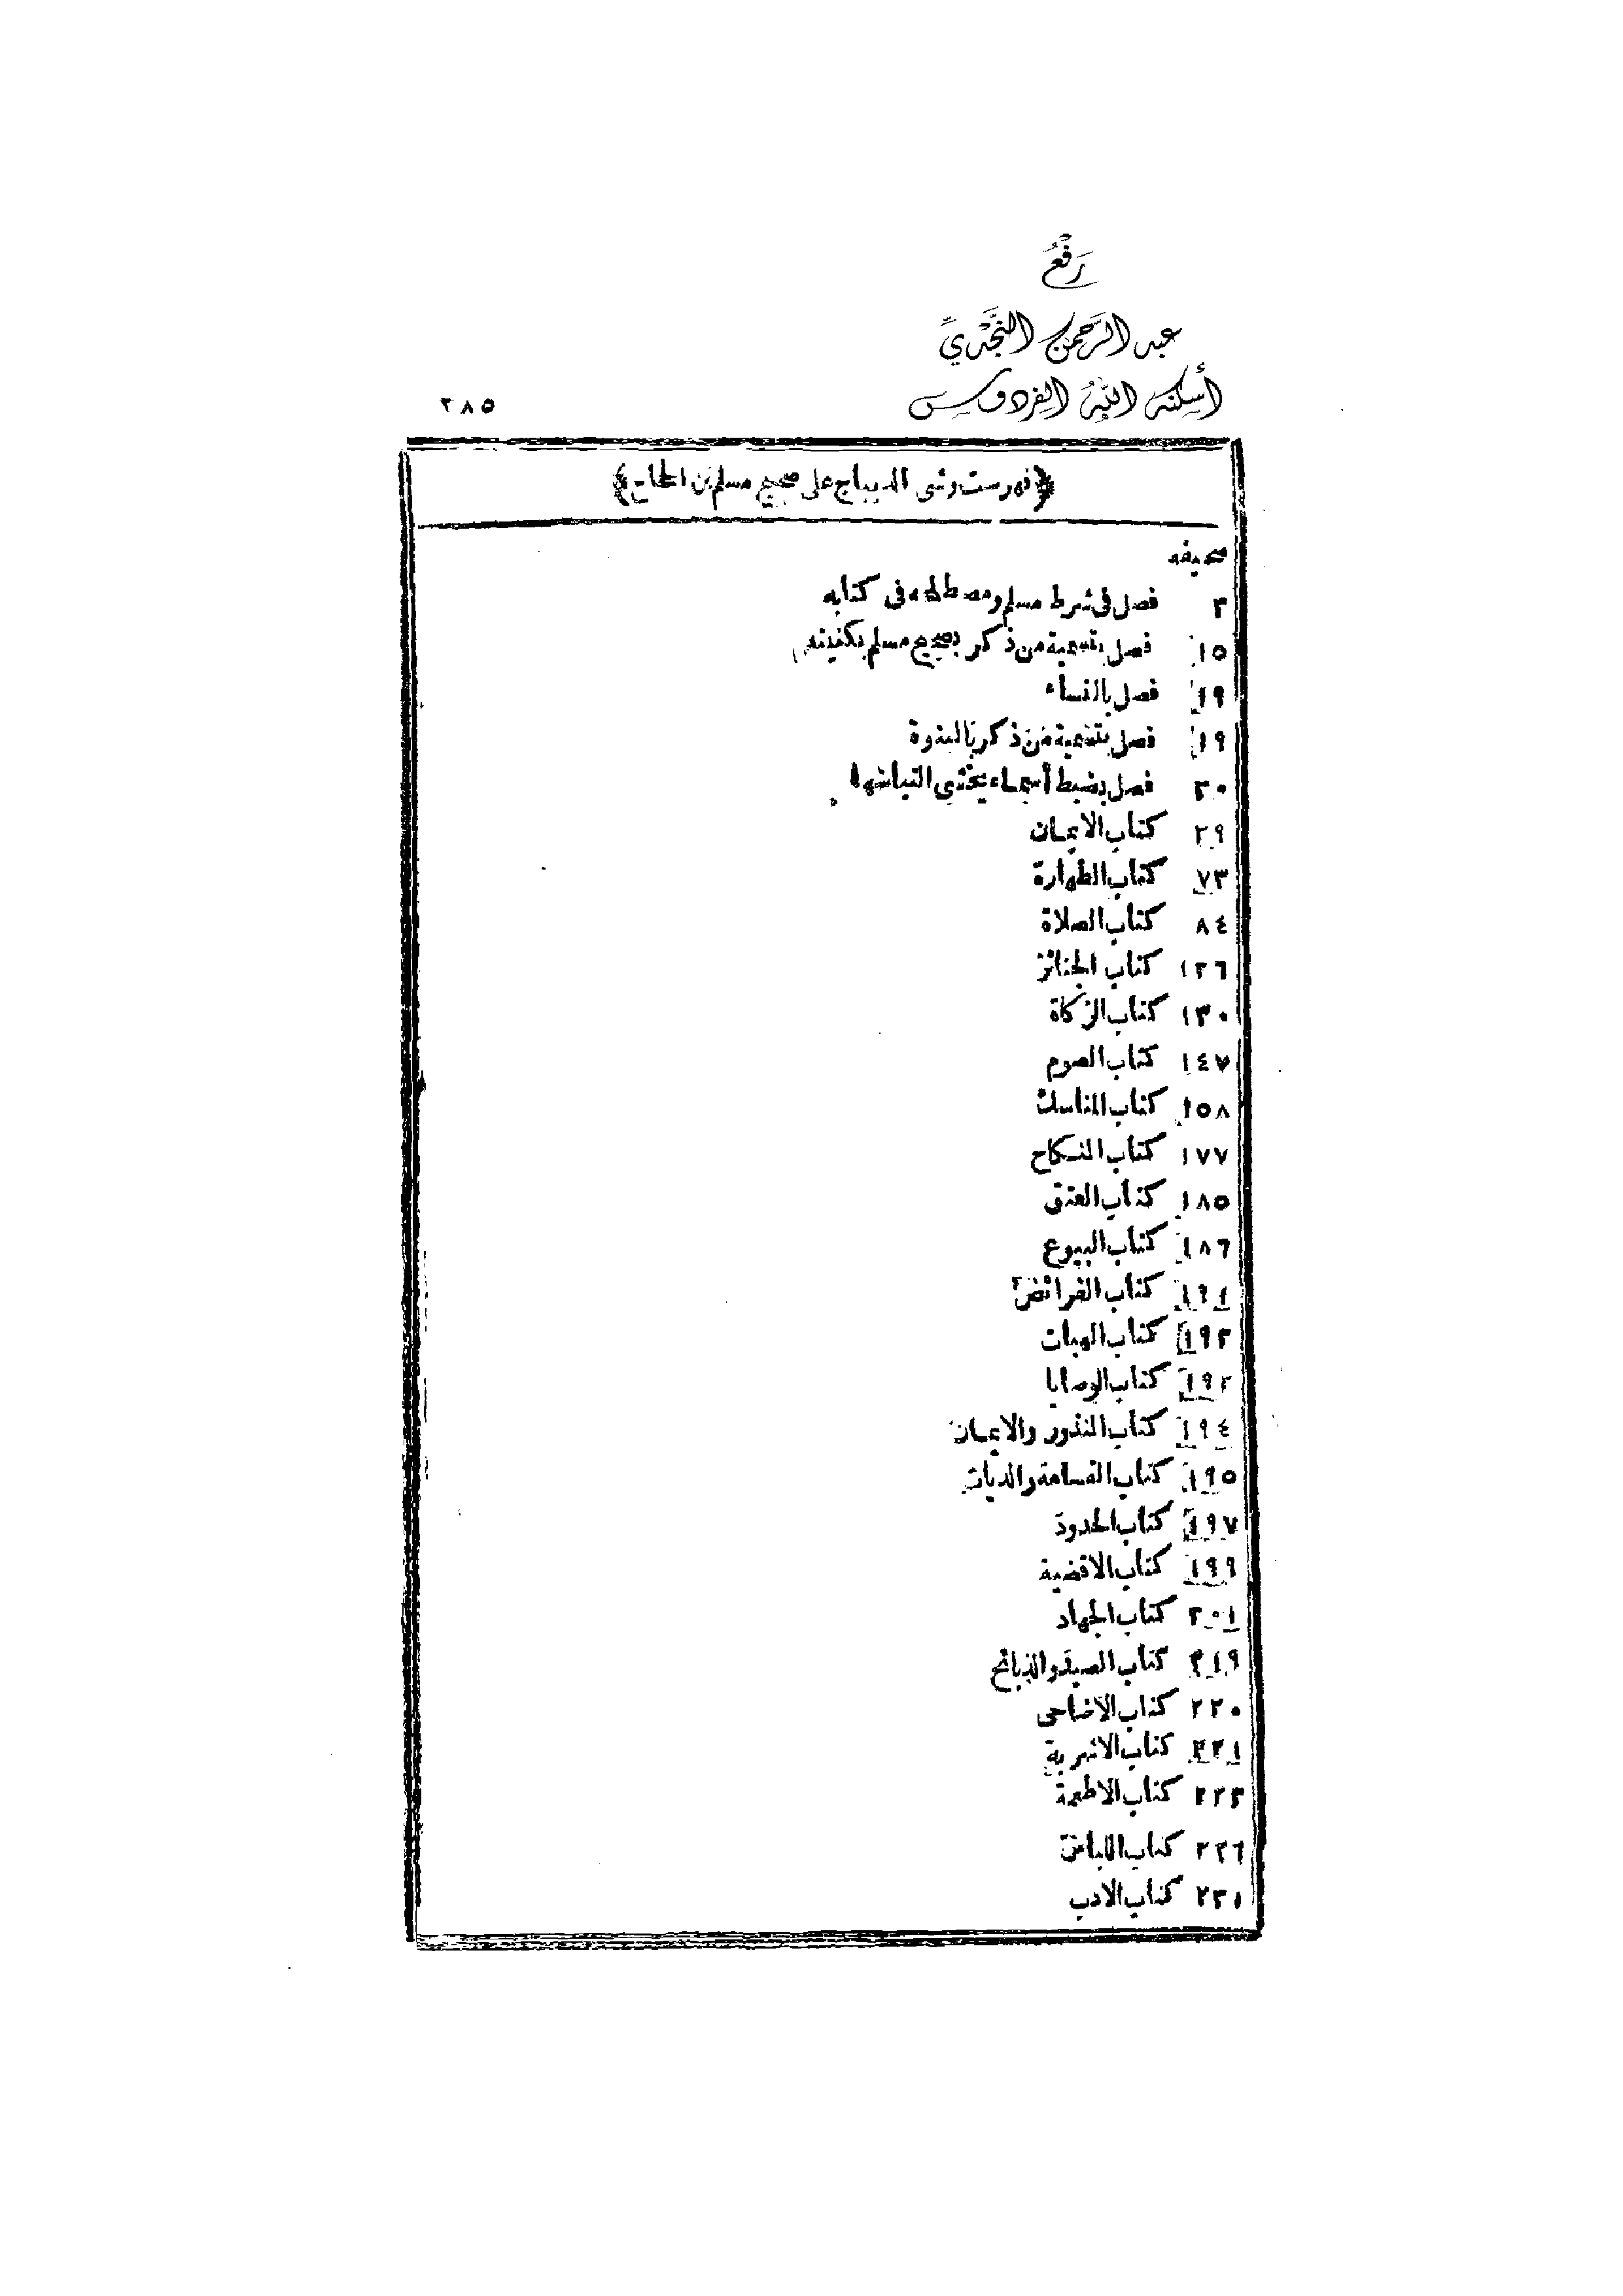 رَفْعُ
عبد الرَّحمن النَّجْديّ
أسكنه اللهُ الفردوس
٢٨٥
﴿فهرست وشى الديباج على صحيح مسلم بن الحجاج﴾
صحيفه
٣ فصل فى شرط مسلم ومصطلحه فى كتابه
١٥ فصل بتسمية من ذكر بصحيح مسلم بكنيته
١٩ فصل بالنساء
١٩ فصل بتسمية من ذكر بالبنوة
٢٠ فصل بضبط أسماء يخشى التباسها
٢٩ كتاب الايمان
٧٣ كتاب الطهارة
٨٤ كتاب الصلاة
١٢٦ كتاب الجنائز
١٣٠ كتاب الزكاة
١٤٧ كتاب الصوم
١٥٨ كتاب المناسك
١٧٧ كتاب النكاح
١٨٥ كتاب العتق
١٨٦ كتاب البيوع
١٩١ كتاب الفرائض
١٩٢ كتاب الهبات
١٩٢ كتاب الوصايا
١٩٤ كتاب النذور والايمان
١٩٥ كتاب القسامة والديات
١٩٧ كتاب الحدود
١٩٩ كتاب الاقضية
٢٠١ كتاب الجهاد
٢١٩ كتاب الصيد والذبائح
٢٢٠ كتاب الاضاحى
٢٢١ كتاب الاشربة
٢٢٣ كتاب الاطعمة
٢٢٦ كتاب اللباس
٢٣١ كتاب الادب